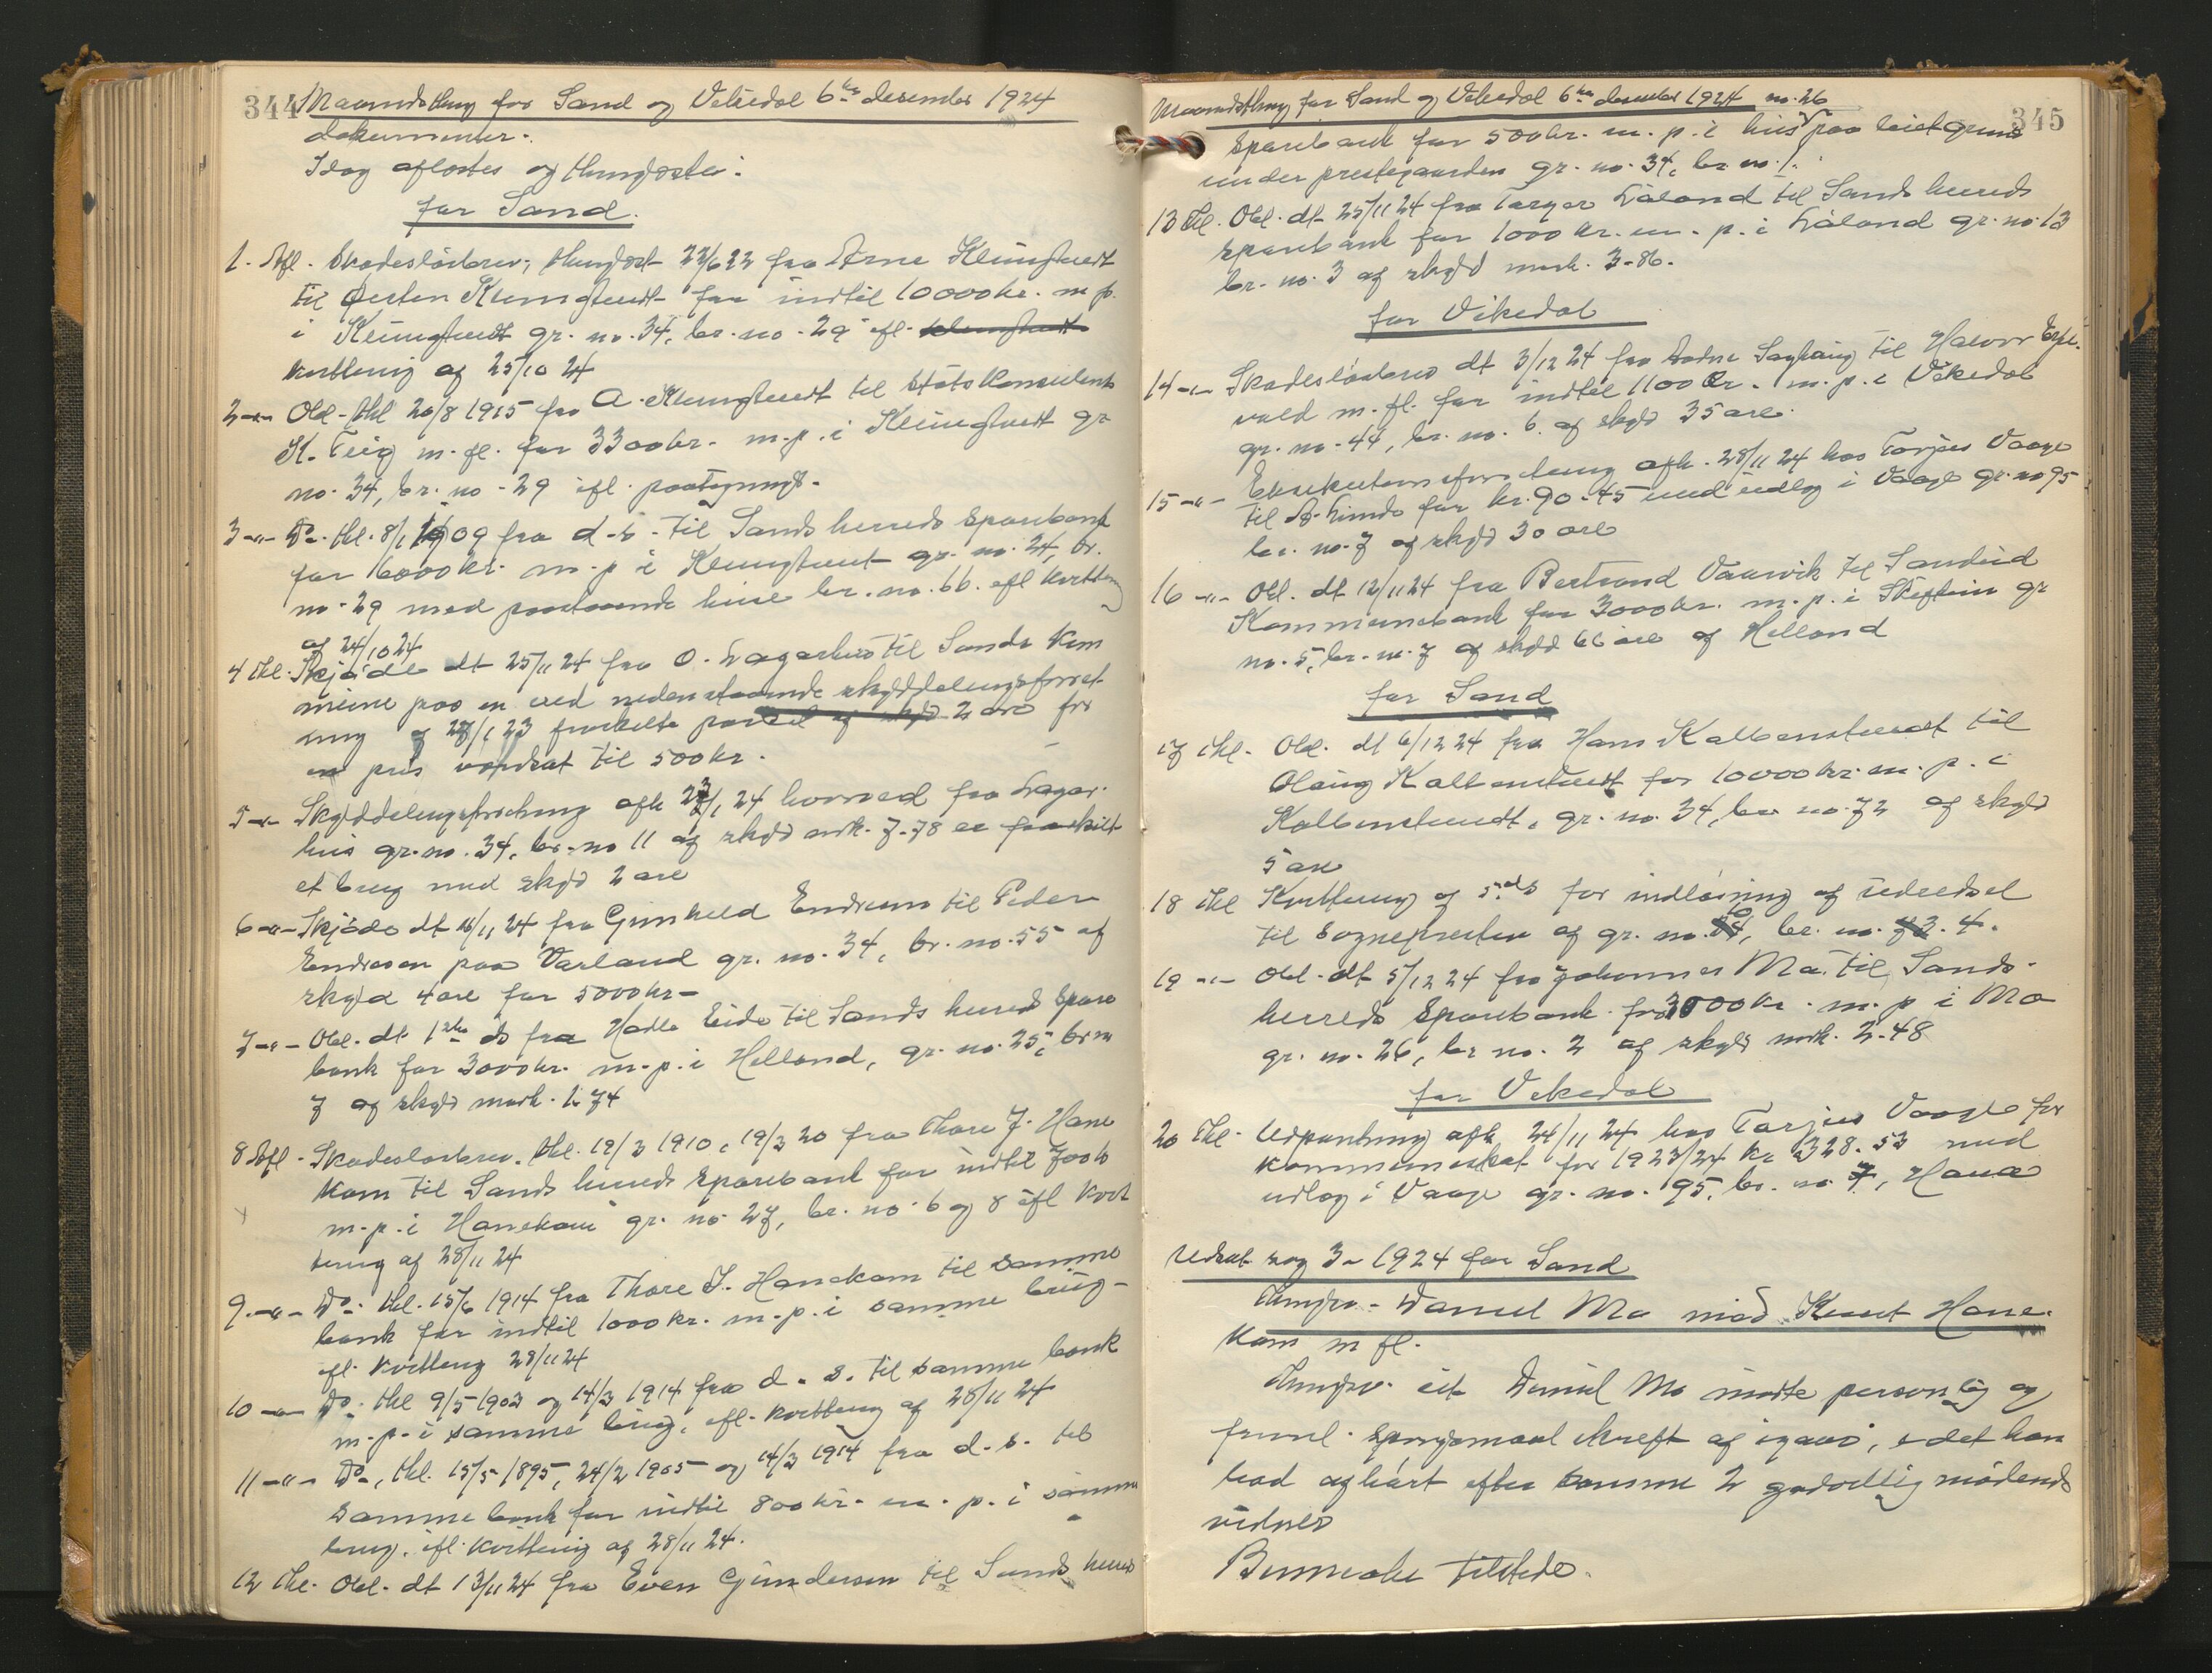 344 Maanedsthing for Sand og Vikedal 6te desember 1924
dokumenter.
Idag aflæstes og thinglæstes:
for Sand.
1. Afl. Skadesløsbrev, thinglæst 22/6 22 fra Arne Klungtveit
til Øisten Klungtveit for indtil 10000 kr. m p.
i Klungtveit gr. no. 34, br. no. 29 ifl.
kvittering af 25/10 24
2 -"- Obl. thl 20/8 1915 fra A. Klungtveit til Statskonsulent
K. Teig m. fl. for 3300 kr. m. p. i Klungtveit gr
no. 34, br. no. 29 ifl. paategning.
3 -"- Do. thl. 8/1 1909 fra d. s. til Sands herreds Sparebank
for 6000 kr. m. p i Klungtveit gr. no. 24, br.
no. 29 med paastaaende huse br. no. 66. ifl kvittering
af 24/10 24
4 thl. Skjøde dt 25/11 24 fra O. Lagarhus til Sands Kom
mune paa en ved nedenstaaende skylddelingsforret
ning af 27/1 23 fraskilte parcel af skyld 2 øre for
en pris værdsat til 500 kr.
5 -"- Skylddelingsforretning afh 27/1 24 hvorved fra Lagar-
hus gr. no. 34, br. no 11 af skyld mrk. 7-78 er fraskilt
et brug med skyld 2 øre
6 -"- Skjøde dt 18/11 24 fra Gunhild Endresen til Peder
Endresen paa Varland gr. no. 34, br. no. 55 af
skyld 4 øre for 5000 kr-
7 -"- Obl. dt 1ste ds fra Hadle Eide til Sands herreds Spare
bank for 3000 kr. m. p. i Helland, gr. no. 25, br no
7 af skyld mark. 1.74
8 Afl. Skadesløsbrev. thl. 19/3 1910, 19/3 20 fra Thore J. Hane
kam til Sands herreds Sparebank for indtil 700 kr
m. p. i Hanekam gr. no 27, br. no. 6 og 8 ifl kvit
tering af 28/11 24
9. -"- Do. thl. 15/6 1914 fra Thore J. Hanekam til samme
bank for indtil 1000 kr. m. p. i samme brug-
ifl. kvittering 28/11 24
10 -"- Do. thl 9/5 1903 og 14/3 1914 fra d. s. til samme bank
m. p. i samme brug, ifl. kvittering af 28/11 24
11 -"- Do., thl. 15/5 1895, 24/2 1905 og 14/3 1914 fra d. s. til
samme bank for indtil 800 kr. m. p. i samme
brug, ifl. kvittering af 28/11 24.
12 thl. Obl. dt 13/11 24 fra Even Gundersen til Sands herreds
Maanedsthing for Sand og Vikedal 6te desember 1924 no. 26
345
Sparebank for 500 kr. m. p. i hus paa leiet grund
under prestegaarden gr. no. 34, br no. 1.
13 thl. Obl. dt 25/11 24 fra Torger Låland til Sands herreds
sparebank for 1000 kr. m. p. i Låland gr. no. 13
br. no. 3 af skyld mark. 3-86.
for Vikedal
14 -"- Skadesløsbrev dt 3/12 24 fra Sagbaug til Halvor
m. fl. for indtil 1100 Kr. m. p. i Vikedal
gr. no. 44, br. no. 6. af skyld 35 øre.
15 -"- Eksekutionsforretning afh. 28/11 24 hos Torjus Vaage
til A. Linde for kr. 90-45 med udlæg i Vaage gr. no 95
br. no. 7 af skyld 30 øre
16 -"- Obl. dt 12/11 24 fra Bertrand Vaarvik til Sandeid
Kommunebank for 3000 kr. m. p. i gr
no. 5, br. no. 7 af skyld 66 øre af Helland
for Sand
17 thl. Obl. dt 6/12 24 fra Hans Kolbenstvedt til
Olaug Kolbenstvedt for 10000 kr. m. p. i
Kolbenstvedt, gr. no. 34, br no. 72 af skyld
5 øre
18 thl Kvittering af 5. ds for indløsning af
til sognepresten af gr. no. br. no. 4.
19 -"- Obl. dt 5/12 24 fra Johannes Mo til Sands-
herreds Sparebank for 3000 kr. m. p i Mo
gr. no. 26, br no. 2 af skyld mrk. 2-48
for Vikedal
20 thl. Udpantning afh 24/11 24 hos Torjus Vaage for
kommuneskat for 1923/24 kr 328.53 med
udlæg i Vaage gr. no. 95, br. no 7,
Udsat sag 3- 1924 for Sand
Daniel Mo mod Knut Hane-
kam m fl.
Daniel Mo møtte personlig og
freml. spørgsmaal skreft af igaar, idet han
bad afhørt efter samme 2 godvillig mødende
vidner
tilstede.